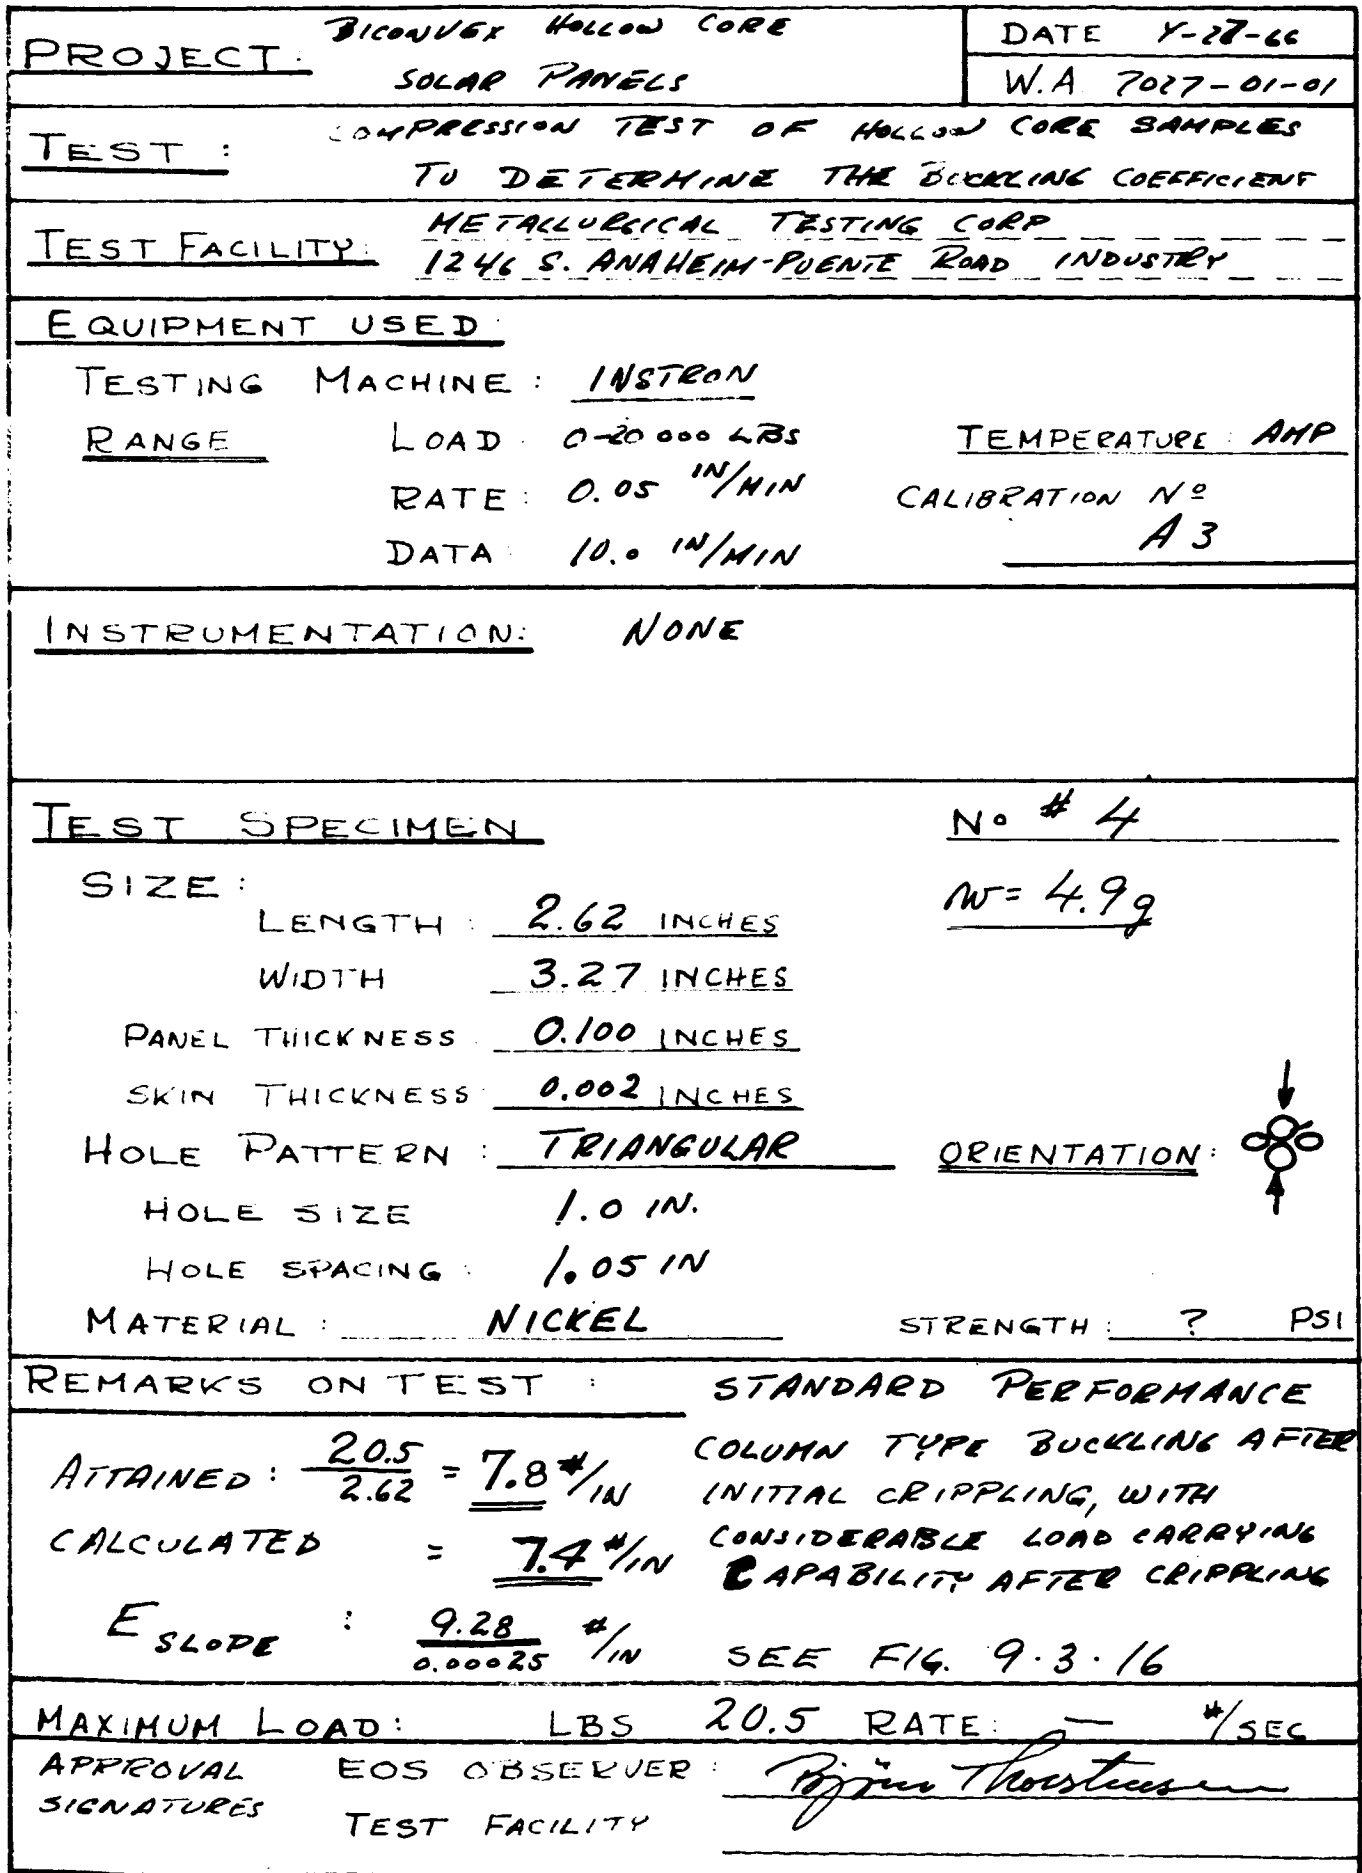 PROJECT: BICONVEX HOLLOW CORE
SOLAR PANELS
DATE Y-28-66
W.A 7027-01-01
TEST : COMPRESSION TEST OF HOLLOW CORE SAMPLES
TO DETERMINE THE BUCKLING COEFFICIENT
TEST FACILITY: METALLURGICAL TESTING CORP
1246 S. ANAHEIM-PUENTE ROAD INDUSTRY
EQUIPMENT USED
TESTING MACHINE : INSTRON
RANGE LOAD 0-20 000 LBS TEMPERATURE : AMP
RATE : 0.05 IN/MIN CALIBRATION Nº
DATA 10.0 IN/MIN A3
INSTRUMENTATION: NONE
TEST SPECIMEN No # 4
SIZE : w= 4.9g
LENGTH : 2.62 INCHES
WIDTH 3.27 INCHES
PANEL THICKNESS 0.100 INCHES
SKIN THICKNESS 0.002 INCHES
HOLE PATTERN : TRIANGULAR ORIENTATION:
HOLE SIZE 1.0 IN.
HOLE SPACING : 1.05 IN
MATERIAL : NICKEL STRENGTH : ? PSI
REMARKS ON TEST : STANDARD PERFORMANCE
ATTAINED : 20.5/2.62 = 7.8 #/IN
CALCULATED = 7.4 #/IN
E SLOPE : 9.28/0.00025 #/IN
COLUMN TYPE BUCKLING AFTER
INITIAL CRIPPLING, WITH
CONSIDERABLE LOAD CARRYING
CAPABILITY AFTER CRIPPLING
SEE FIG. 9.3.16
MAXIMUM LOAD: LBS 20.5 RATE: — #/SEC
APPROVAL
SIGNATURES
EOS OBSERVER : Björn Thorstensen
TEST FACILITY